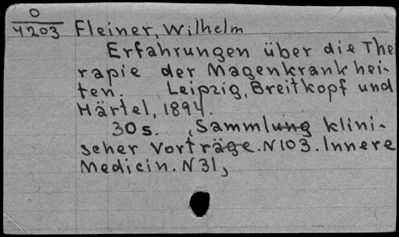 O
4203
Fleiner, Wilhelm
Erfahrungen über die The
rapie der Magenkrankhei-
ten. Leipzig, Breitkopf und
Härtel, 1894.
30s. (Sammlung klini-
scher Vorträge. N103. Innere
Medicin. N31)